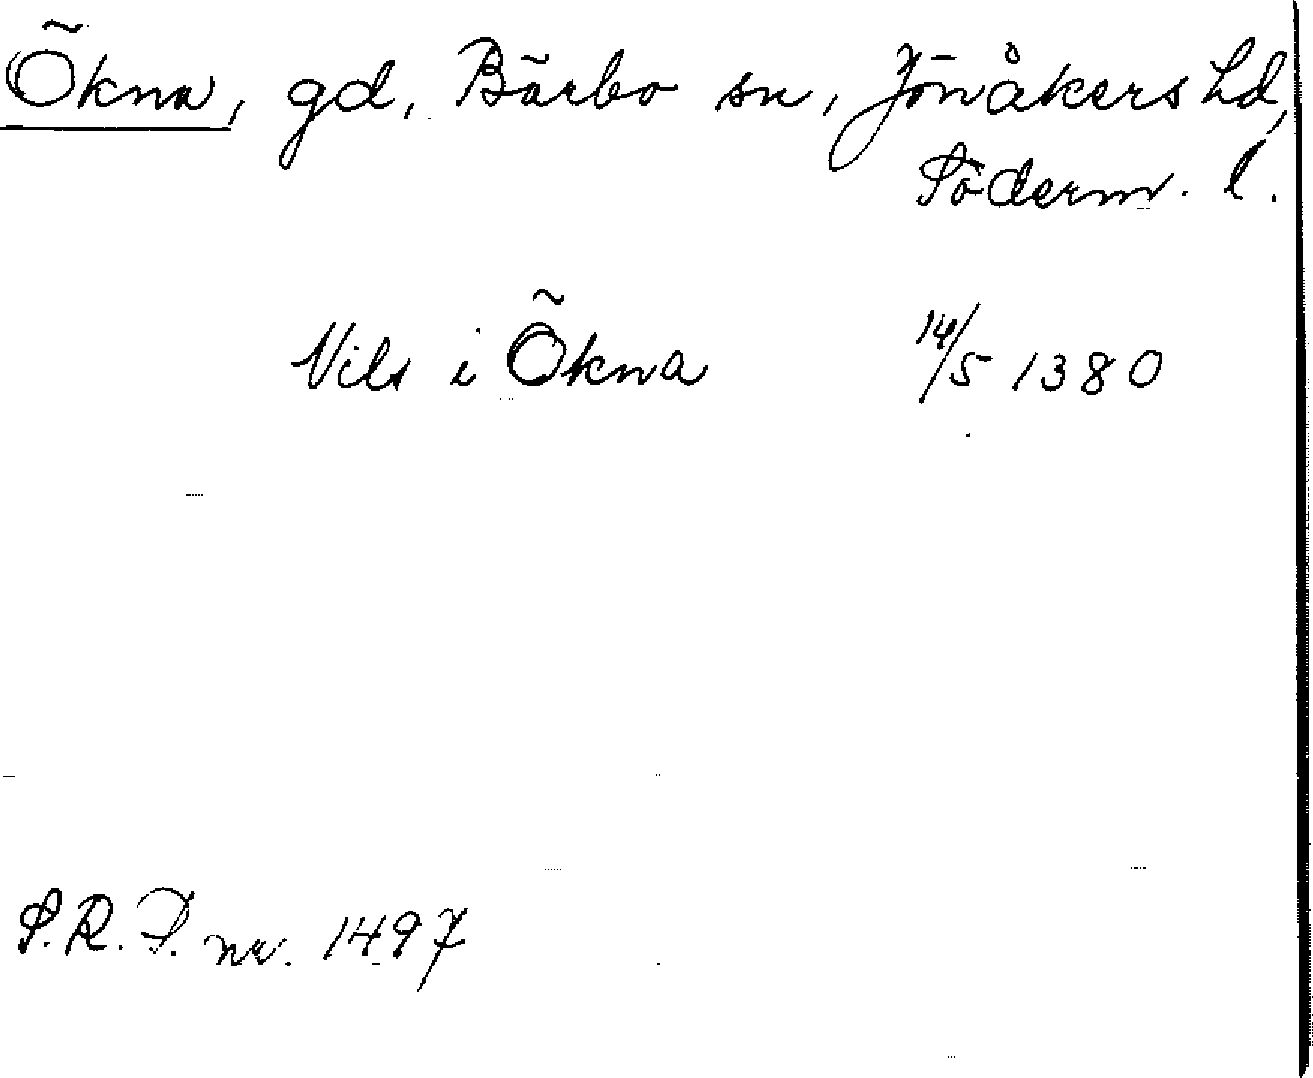 Ökna, gd, Bärbo sn, Jönåkers hd,
Söderm. l.
Nils i Ökna 14/5 1380
S.R.P. nr. 1497